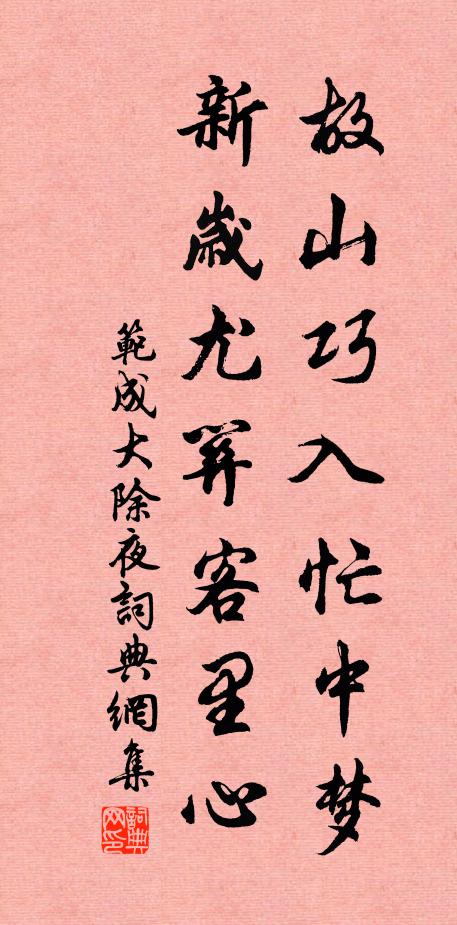 故山巧入忙中梦
新嵗尤客里心
範成大除夜詞典網集
詞典网印